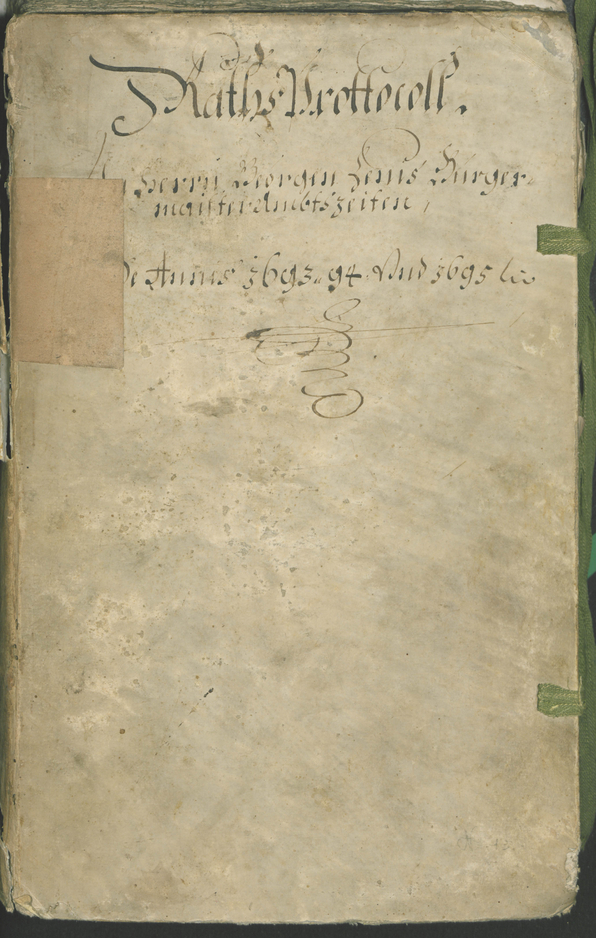 Raths Prottocoll.
Herrn Georgen Zenis Burger-
maister Ambtszeiten,
De Annis 1693. 94. Vnd 1695